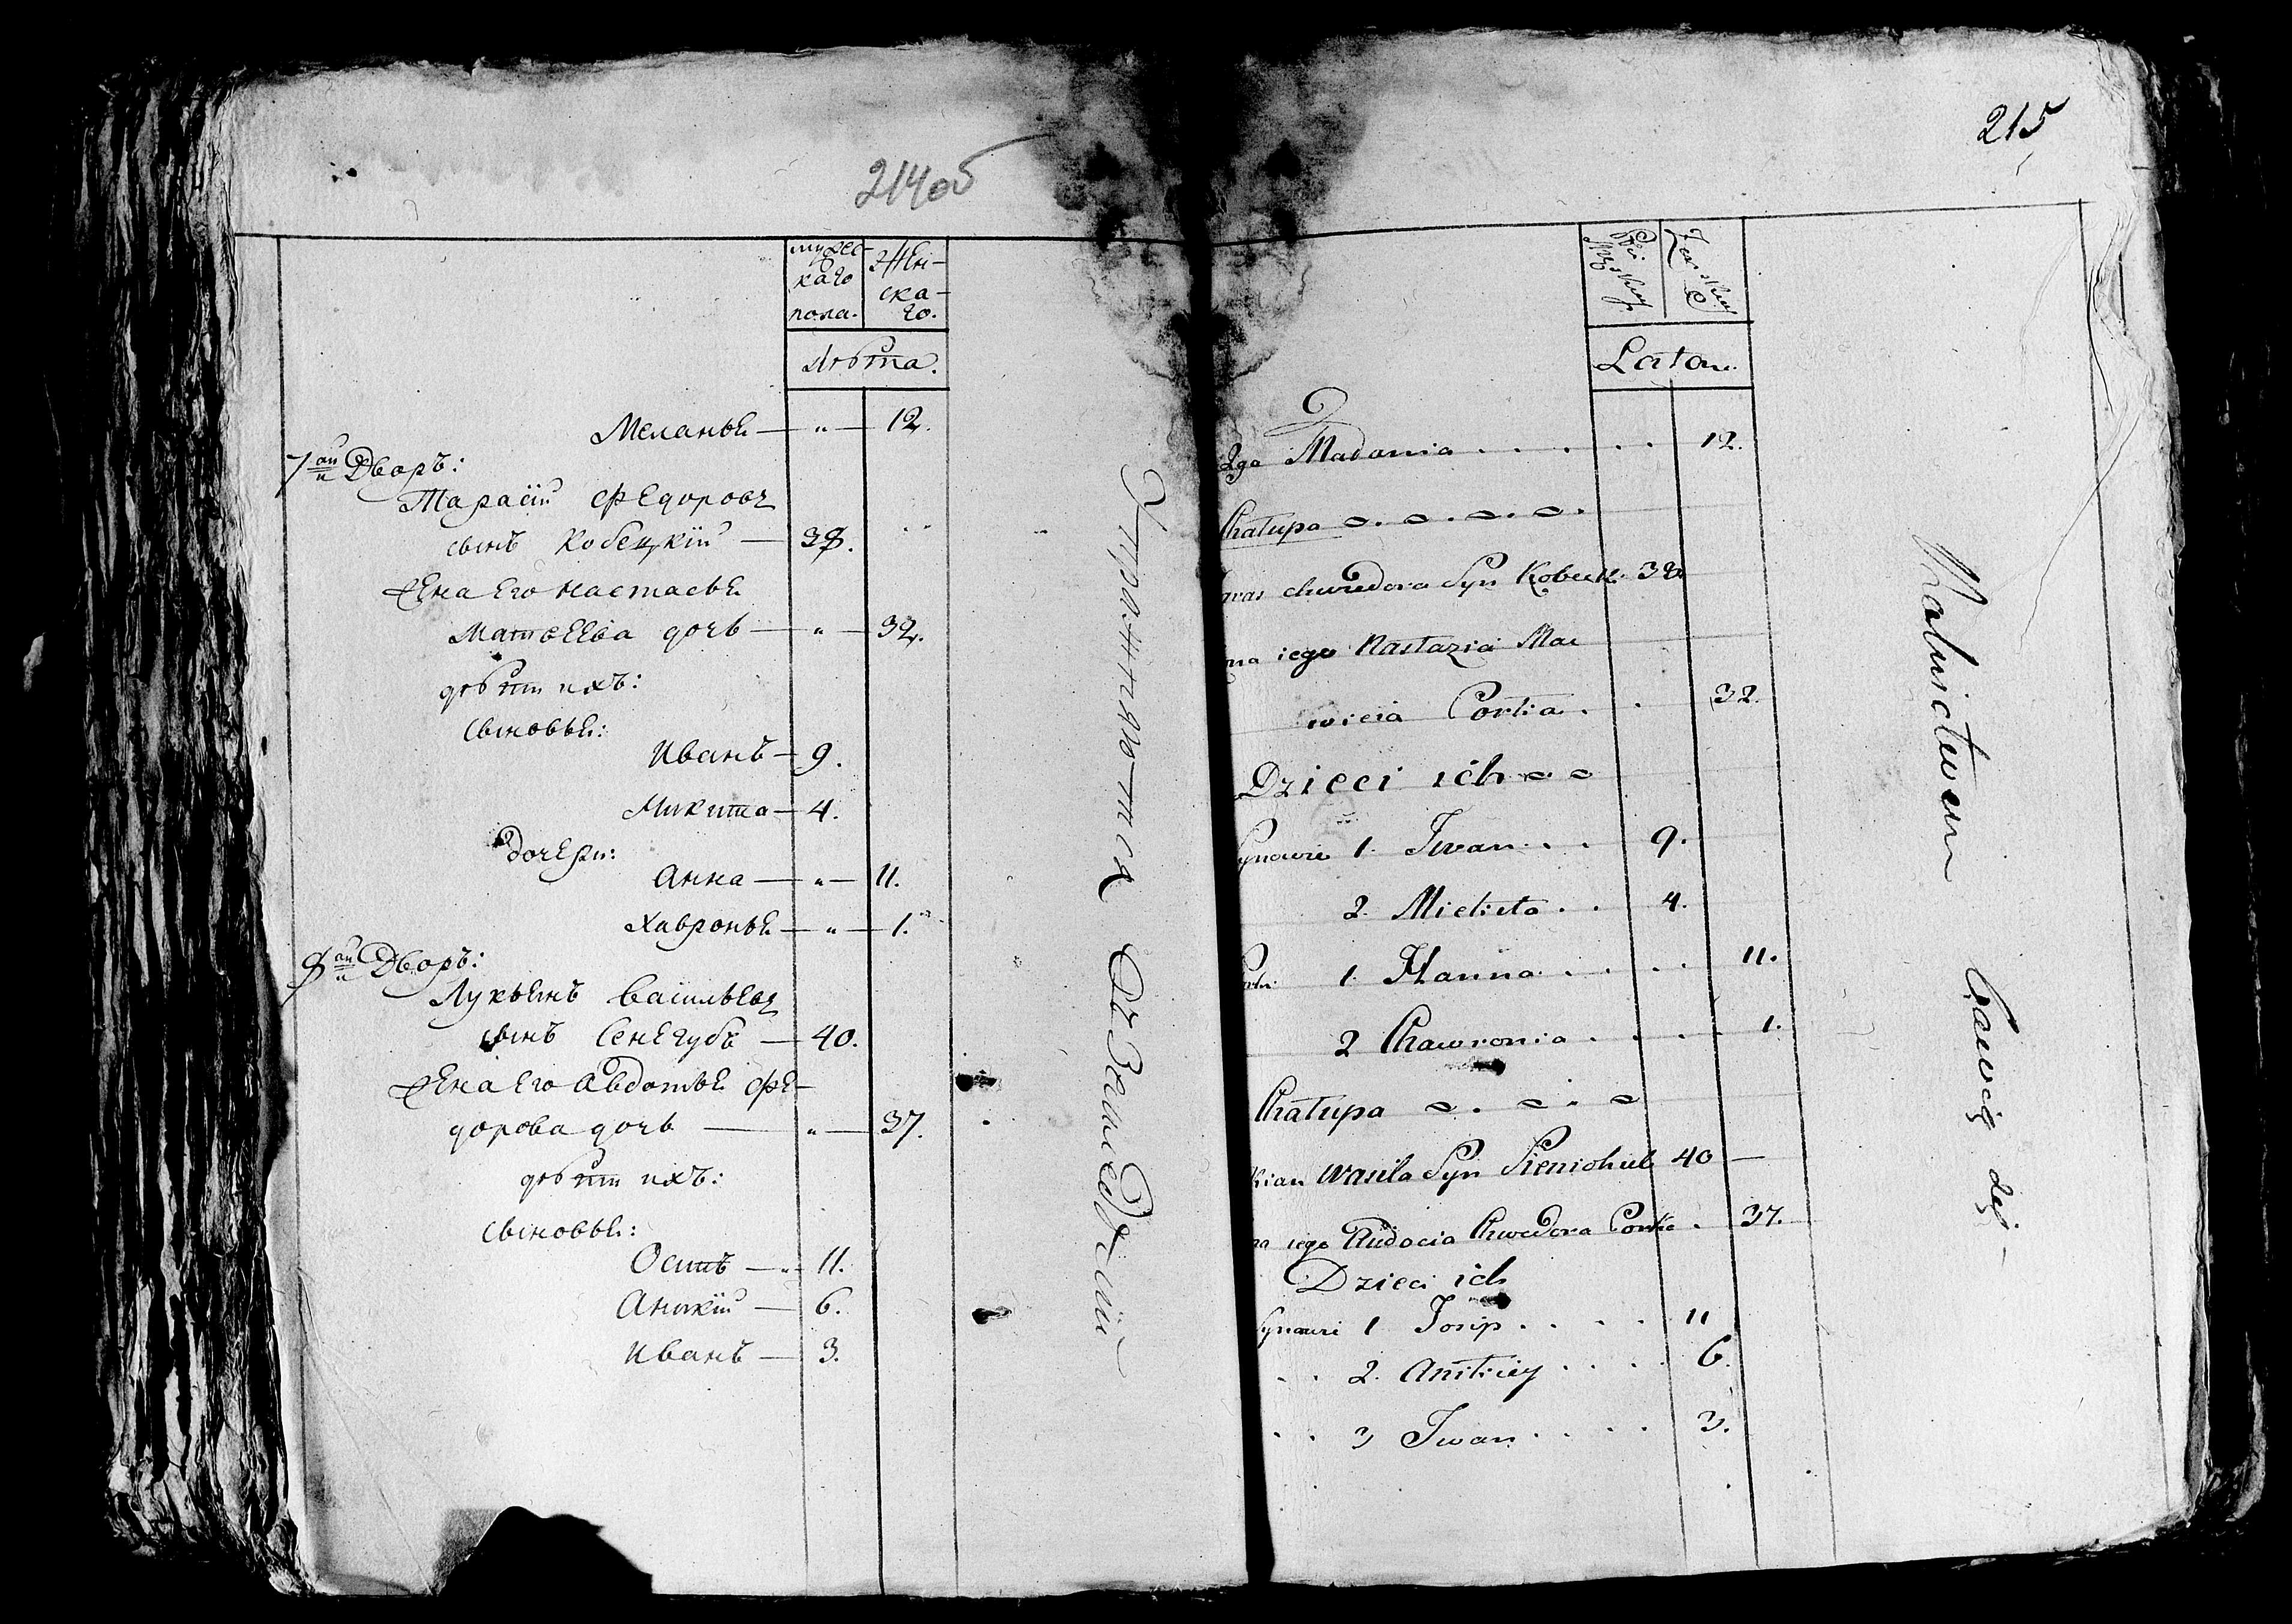 214об
мужес-
каго
пола.
Жен-
ска-
го.
Лѣта.
Меланья — „ — 12.
7ой Дворъ:
Тарасій Федоровъ
сынъ Кобецкій — 38.
жена Его Настасья
Матвеева дочь — „ — 32.
дѣти ихъ:
сыновья:
Иванъ — 9.
Микита — 4.
Дочери:
Анна — „ — 11.
Хавронья — „ — 1.
8ой Дворъ:
Лукьянъ Васильевъ
сынъ Сенегубъ — 40.
жена Его Авдотья Фе-
дорова дочь — „ — 37.
дѣти ихъ:
сыновья:
Осипъ — „ 11.
Аникій — 6.
Иванъ — 3.
Упражняются въ Земледѣлии
215
Płci Męskiey
Żenskiey
Lata.
2ga Madania . . . . . . 12.
Chałupa
aras Chwedora Syn Kobecki 38
na iego Nastazia Mac
wieia Corka . . 32.
Dzieci ich
Synowie 1. Iwan . . 9.
2. Mickita . . 4.
1. Hanna . . . . . 11.
2 Chawronia . . . . 1.
Chałupa
kian Wasila Syn Sieniohub 40 —
na iego Audocia Chwedora Corka . 37.
Dzieci ich
Synowie 1 Iosip . . . . 11
2. Anikiey . . . . 6.
3 Iwan . . . . 3.